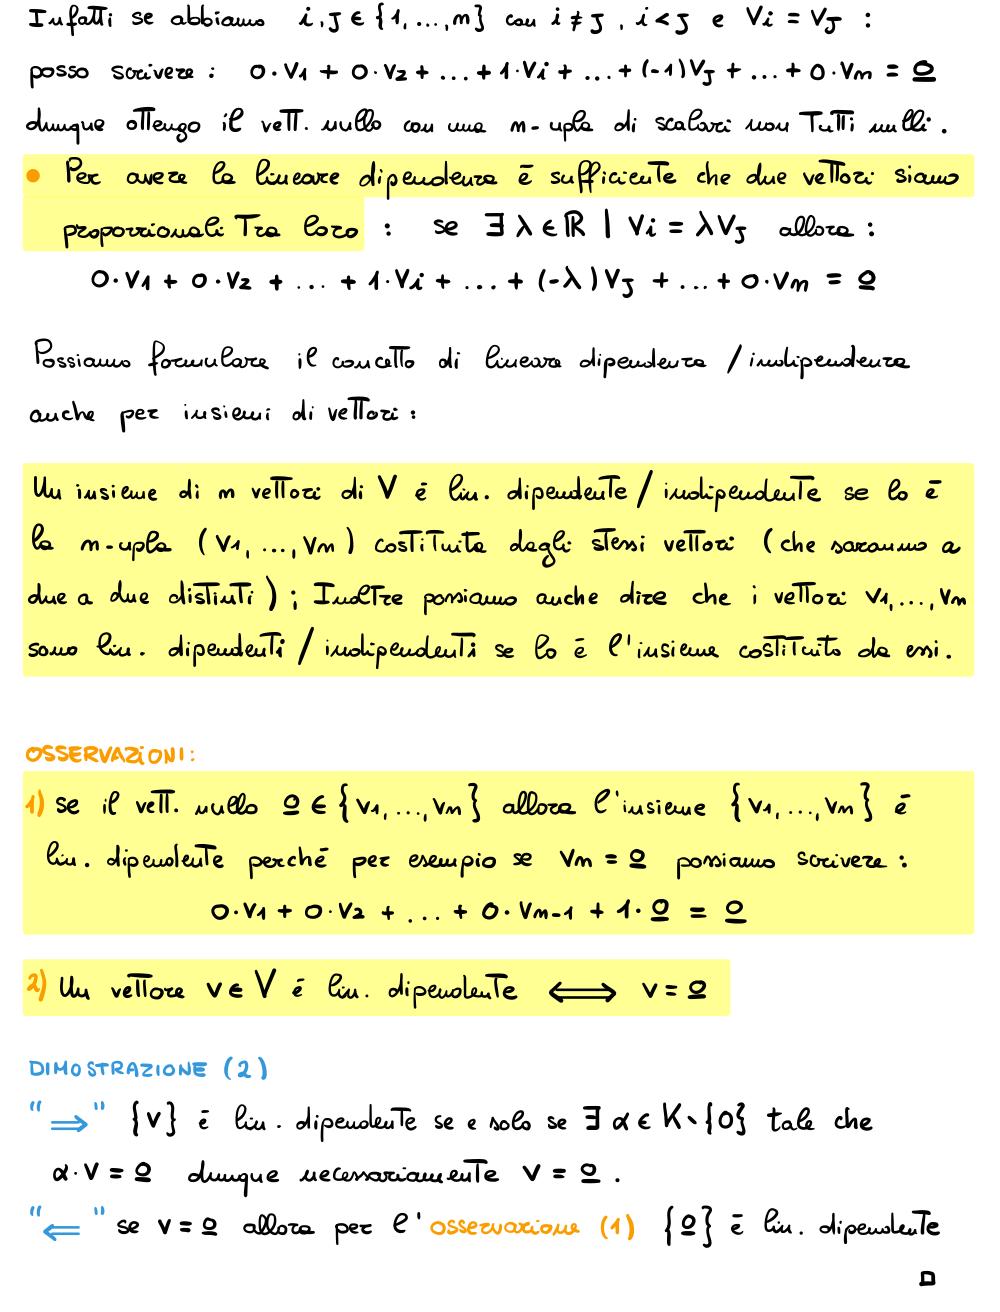 Infatti se abbiamo i, J ∈ {1, ..., n} con i ≠ J, i < J e Vi = VJ :
posso scrivere : 0·V1 + 0·V2 + ... + 1·Vi + ... + (-1)VJ + ... + 0·Vn = 0
dunque ottengo il vett. nullo con una n-upla di scalari non Tutti nulli.
• Per avere la lineare dipendenza è sufficiente che due vettori siano
proporzionali Tra loro : se ∃ λ ∈ ℝ | Vi = λVJ allora :
0·V1 + 0·V2 + ... + 1·Vi + ... + (-λ)VJ + ... + 0·Vn = 0
Possiamo formulare il concetto di lineare dipendenza / indipendenza
anche per insiemi di vettori :
Un insieme di n vettori di V è lin. dipendente / indipendente se lo è
la n-upla (V1, ..., Vn) costituita dagli stessi vettori (che saranno a
due a due distinti) ; Inoltre possiamo anche dire che i vettori V1, ..., Vn
sono lin. dipendenti / indipendenti se lo è l'insieme costituito da essi.
OSSERVAZIONI:
1) se il vett. nullo 0 ∈ {V1, ..., Vn} allora l'insieme {V1, ..., Vn} è
lin. dipendente perché per esempio se Vn = 0 possiamo scrivere :
0·V1 + 0·V2 + ... + 0·Vn-1 + 1·0 = 0
2) Un vettore v ∈ V è lin. dipendente ⟺ v = 0
DIMOSTRAZIONE (2)
"⇒" {v} è lin. dipendente se e solo se ∃ α ∈ K∖{0} tale che
α·v = 0 dunque necessariamente v = 0.
"⇐" se v = 0 allora per l'osservazione (1) {0} è lin. dipendente
□